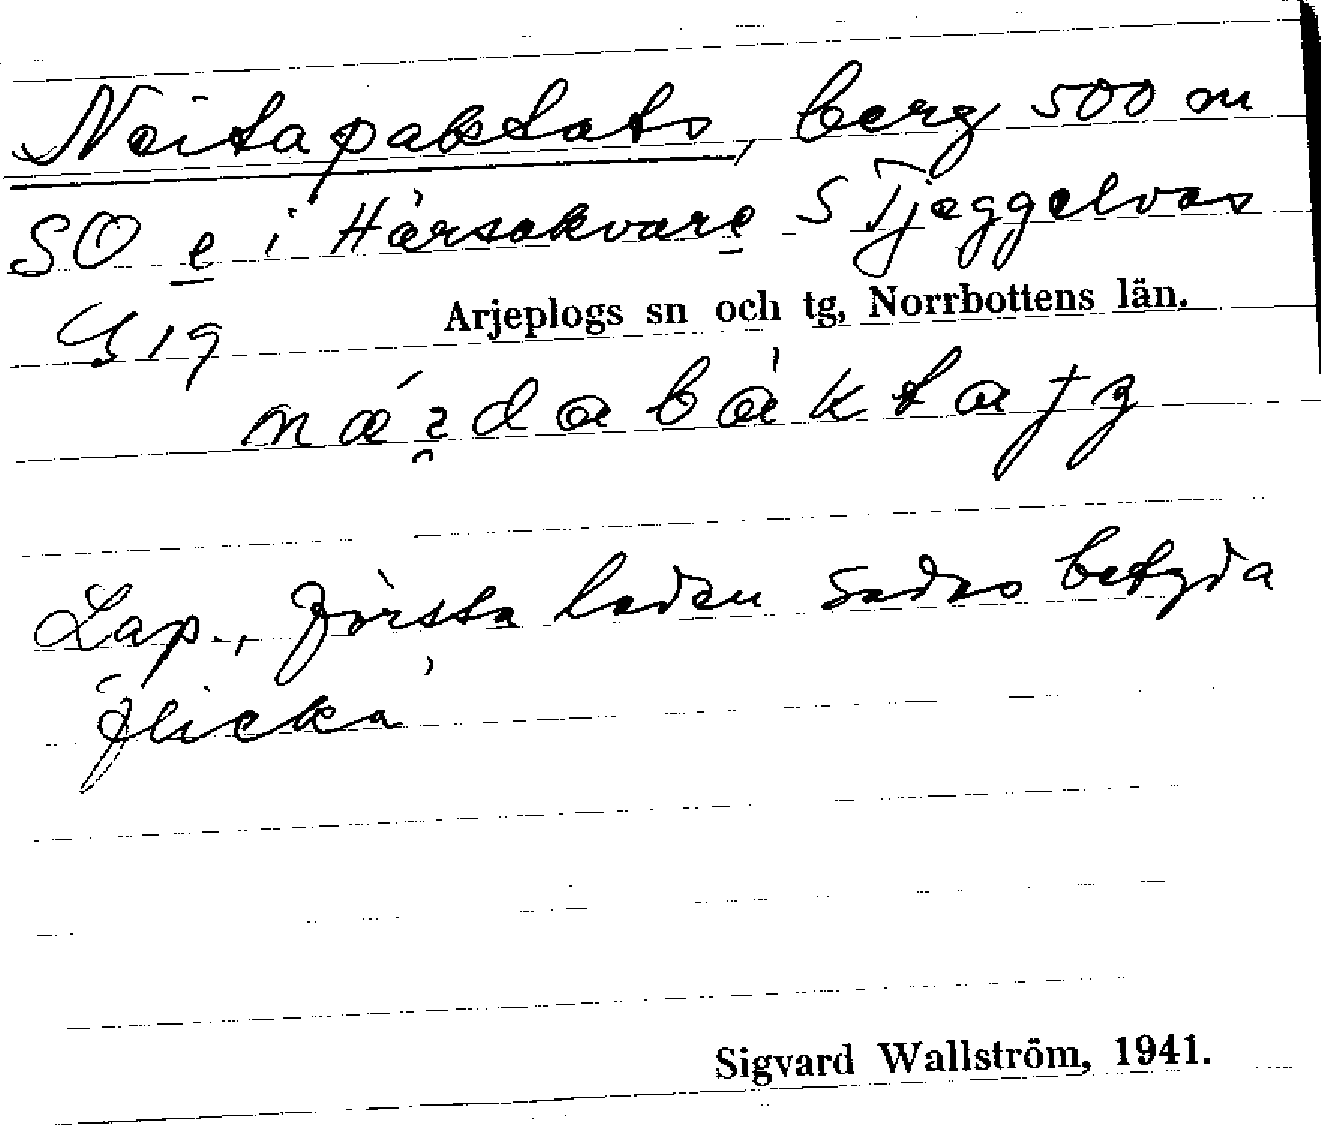 Neitapaktats, berg 500 m
SO e i Hårsakvare S Tjeggelvas
G 19
Arjeplogs sn och tg, Norrbottens län.
Lap., första leden sades betyda
'flicka'
Sigvard Wallström, 1941.